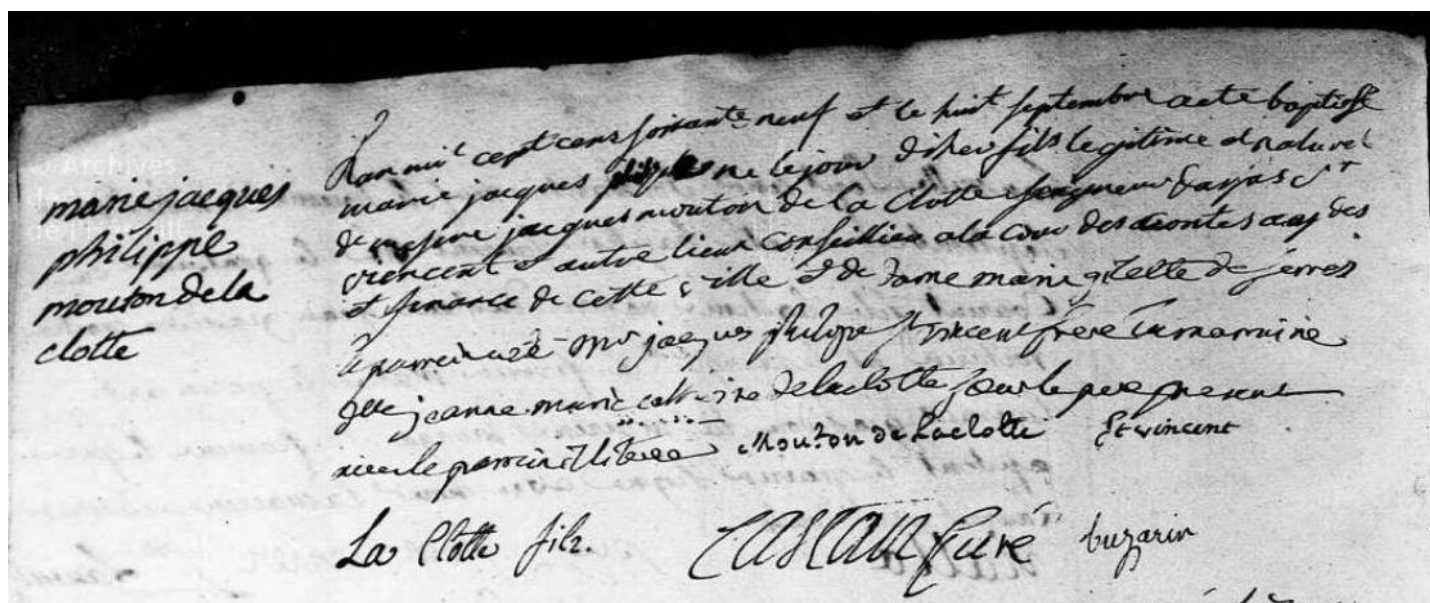 marie jacques
philippe
mouton de la
clotte
L'an mil cept cens soixante neuf et le huit septembre a eté baptisé
marie jacques philippe ne le jour d'hier fils legitime et naturel
de messire jacques mouton de la Clotte seigneur d'assas St
vincent et autre lieux conseillier a la cour des comtes aydes
et finance de cette ville et de dame marie de serres
le parrain a été Mr jacques philippe St vincent frere la marraine
Dlle jeanne marie catherine de laclotte sœur le pere present
signe le parrain
Mouton de Laclotte St vincent
La Clotte fils. CASTAN Curé